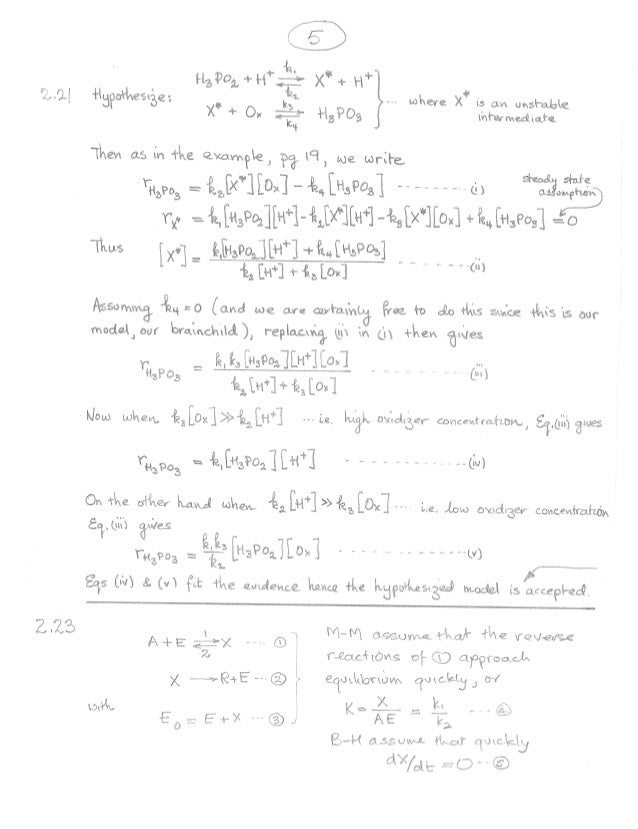 5
2.21 Hypothesize: H3PO2 + H+ ⇌ X* + H+ k1 k2
X* + Ox ⇌ H3PO3 k3 k4
... where X* is an unstable
intermediate
Then as in the example, pg 19, we write
rH3PO3 = k3[X*][Ox] − k4[H3PO3] -------- (i)
steady state
assumption
rX* = k1[H3PO2][H+] − k2[X*][H+] − k3[X*][Ox] + k4[H3PO3] = 0
Thus [X*] = (k1[H3PO2][H+] + k4[H3PO3]) / (k2[H+] + k3[Ox]) -------- (ii)
Assuming k4 = 0 (and we are certainly free to do this since this is our
model, our brainchild), replacing (ii) in (i) then gives
rH3PO3 = (k1 k3 [H3PO2][H+][Ox]) / (k2[H+] + k3[Ox]) -------- (iii)
Now when k3[Ox] ≫ k2[H+] ... ie. high oxidizer concentration, Eq.(iii) gives
rH3PO3 = k1[H3PO2][H+] -------- (iv)
On the other hand when k2[H+] ≫ k3[Ox] .... i.e. low oxidizer concentration
Eq. (iii) gives
rH3PO3 = (k1k3 / k2) [H3PO2][Ox] -------- (v)
Eqs (iv) & (v) fit the evidence hence the hypothesized model is accepted.
2.23
A + E ⇌ X .... ① 1 2
X → R + E ... ②
with E0 = E + X ... ③
M-M assume that the reverse
reactions of ① approach
equilibrium quickly, or
K = X / AE = k1 / k2 ... ④
B-H assume that quickly
dX/dt = 0 .. ⑤